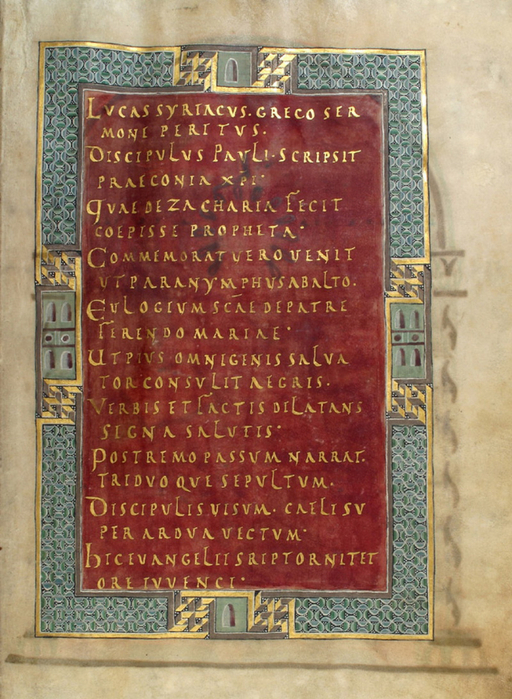 LUCAS SYRIACUS. GRECO SER
MONE PERITUS.
DISCIPULUS PAULI. SCRIPSIT
PRAECONIA XPI.
QUAE DE ZACHARIA FECIT
COEPISSE PROPHETA.
COMMEMORAT UERO UENIT
UT PARANYMPHUS AB ALTO.
EULOGIUM SCAE DE PATRE
FERENDO MARIAE.
UT PIUS OMNIGENIS SALUA
TOR CONSULIT AEGRIS.
VERBIS ET FACTIS DILATANS
SIGNA SALUTIS.
POSTREMO PASSUM NARRAT.
TRIDUOQUE SEPULTUM.
DISCIPULIS UISUM. CAELI SU
PER ARDUA UECTUM.
HIC EUANGELII SRIPTOR NITET
ORE IUUENCI.